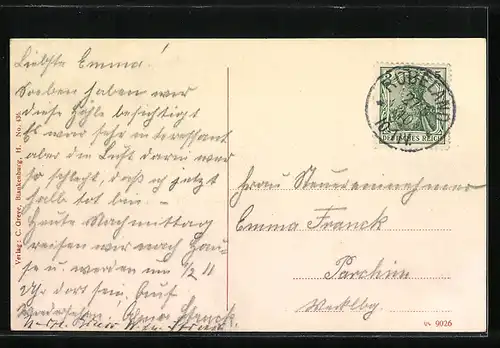 Liebste Emma!
Soeben haben wir
diese Höhle besichtigt
Es war sehr interessant
aber die Luft darin war
so schlecht, daß ich jetzt
halb tot bin –
Heute Nachmittag
reisen wir nach Hau-
se u. werden um 1/2 11
Uhr dort sein. Auf
Wiedersehn.
Verlag: C. Greyer, Blankenburg, H. No. 436.
RÜBELAND
DEUTSCHES REICH
Frau Steuereinnehmer
Emma Franck
Parchim
Mecklbg.
9026